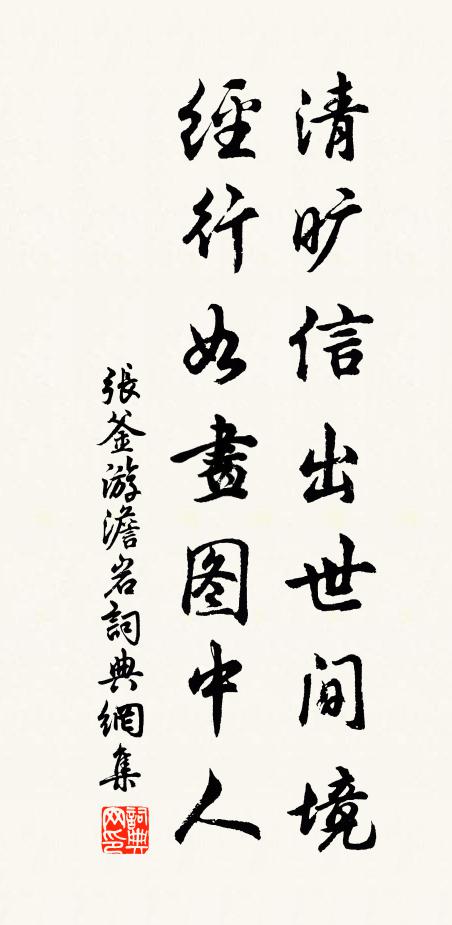 清旷信出世间境
經行如畫图中人
張釜游澹岩詞典網集
詞典
网印